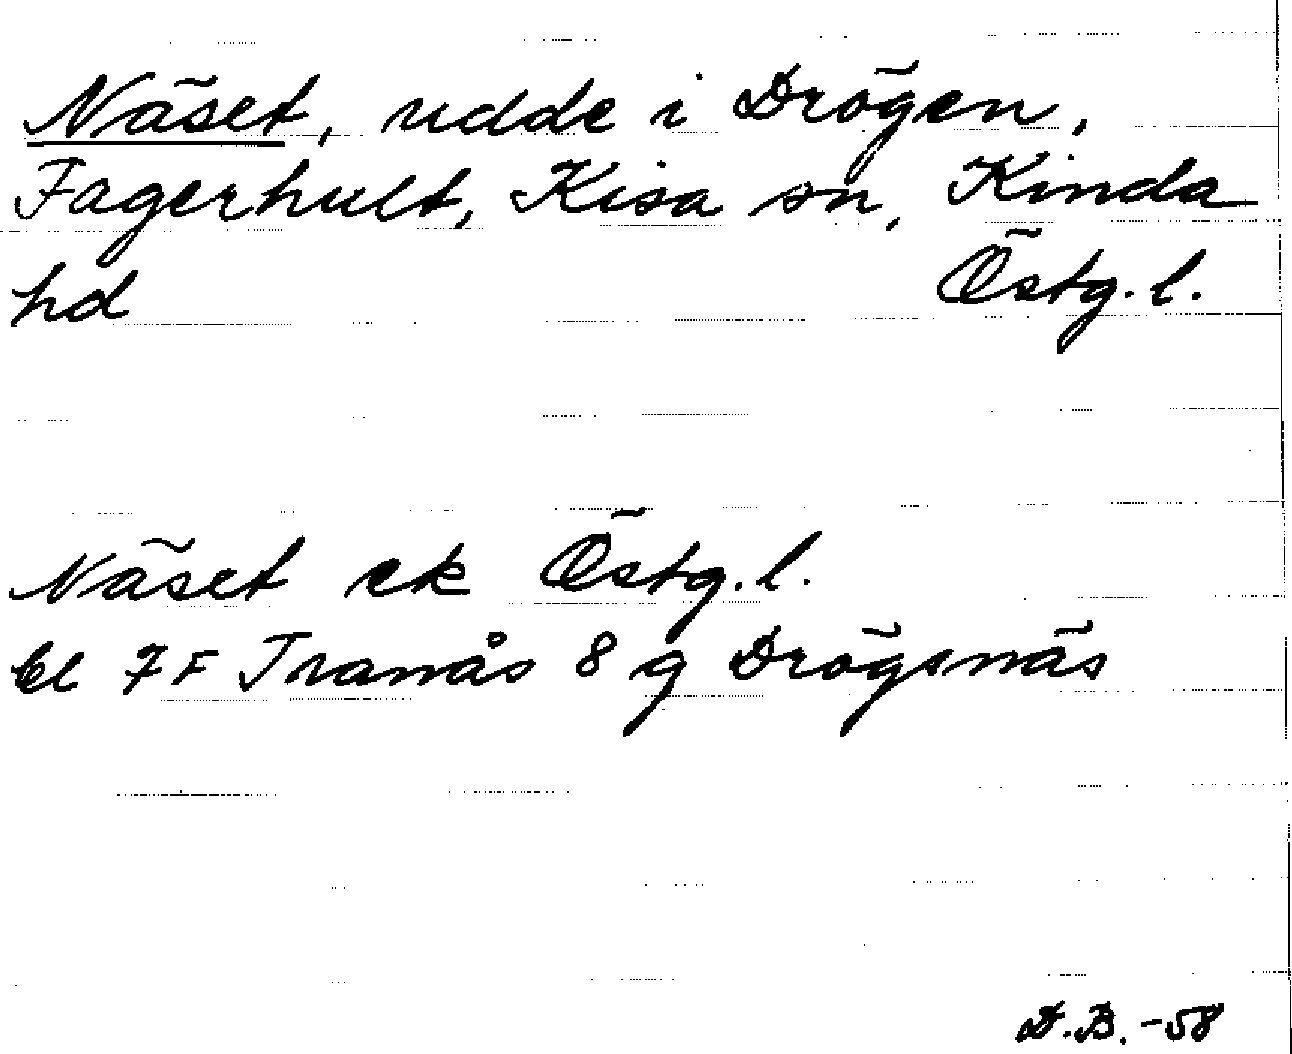 Näset, udde i Drögen,
Fagerhult, Kisa sn, Kinda
hd Östg. l.
Näset ek Östg. l.
bl 7F Tranås 8 g Drögsnäs
D.B. -58